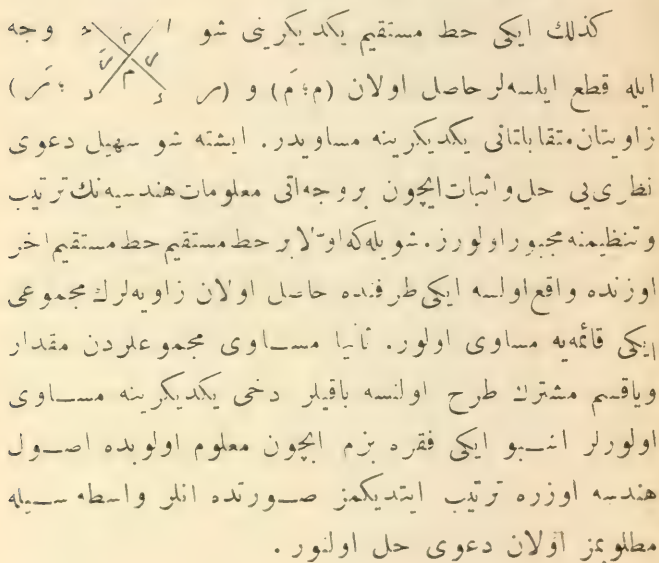 كذلك ايكى حط مستقيم يكديكرينى شو ا م د وجه
ايله قطع ايلسه‌لر حاصل اولان (م ؛ مَ) و (س ؛ سَ)
زاويتان متقابلتانى يكديكرينه مساويدر . ايشته شو سهيل دعوى
نظرى‌يى حل و اثبات ايچون بروجه‌آتى معلومات هندسيه‌نك ترتيب
وتنظيمنه مجبور اولورز . شويله‌كه اوّلا بر حط مستقيم حط مستقيم اخر
اوزنده واقع اولسه ايكى طرفنده حاصل اولان زاويه‌لرك مجموعى
ايكى قائمه‌يه مساوى اولور . ثانيا مساوى مجموعلردن مقدار
وياقسم مشترك طرح اولنسه باقيلر دخى يكديكرينه مساوى
اولورلر اشبو ايكى فقره بزم ايچون معلوم اولوبده اصول
هندسه اوزره ترتيب ايتديكمز صورتده انلر واسطه سيله
مطلوبمز اولان دعوى حل اولنور .